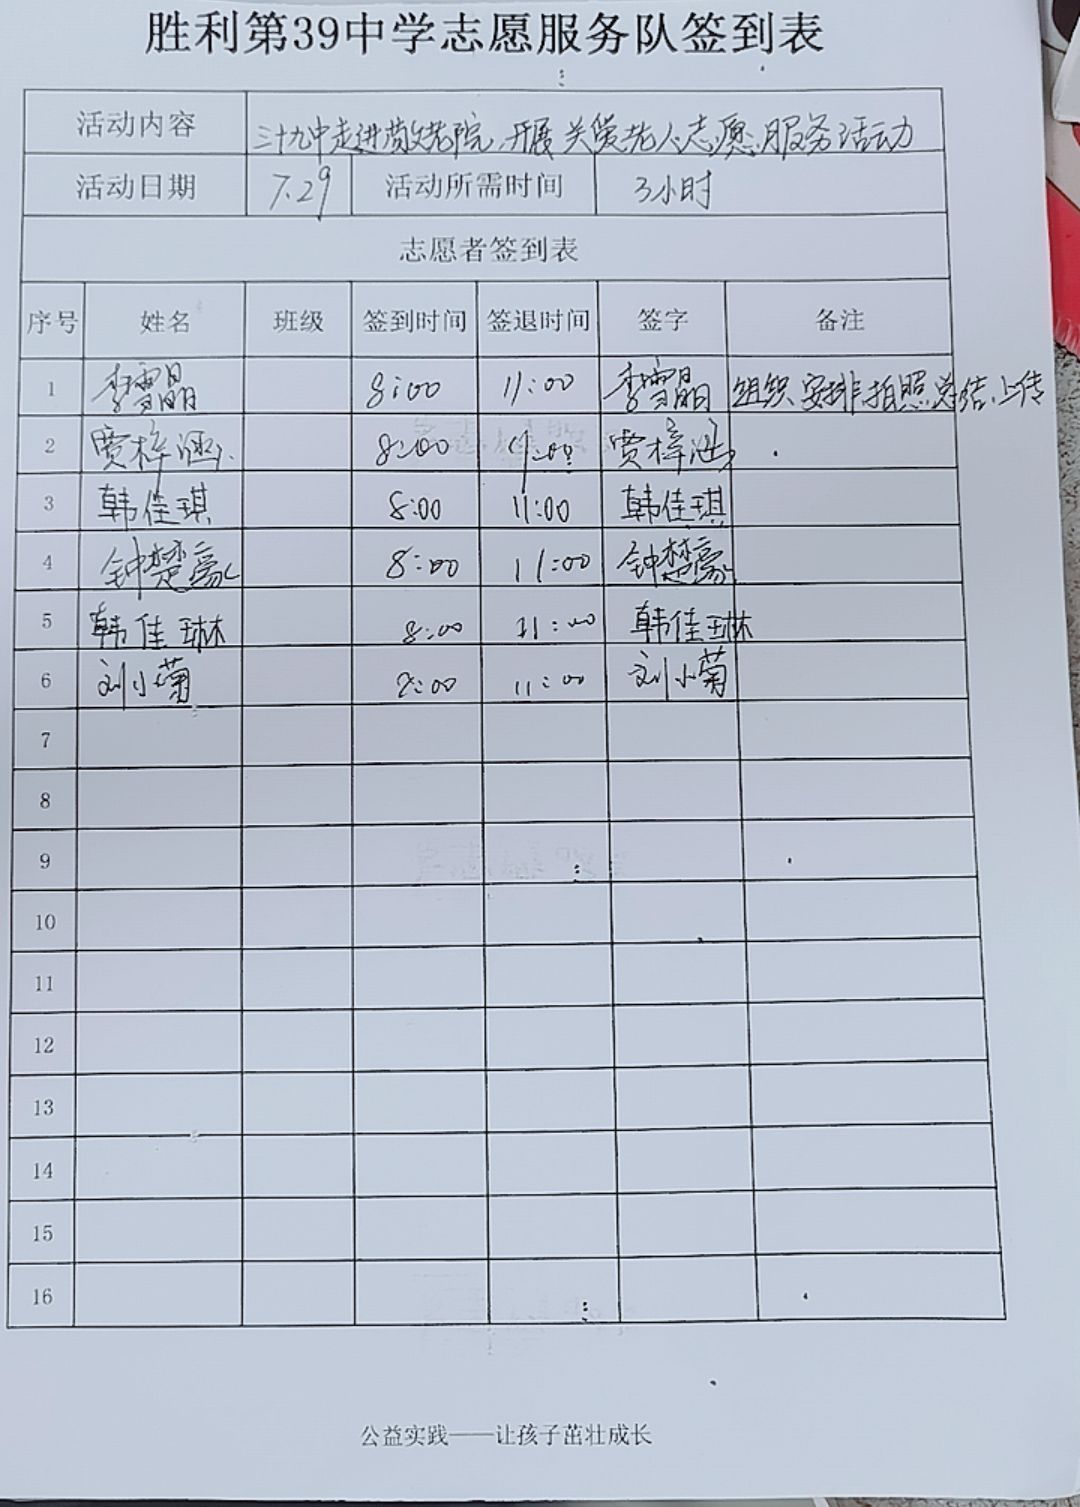 胜利第39中学志愿服务队签到表
活动内容 三十九中走进敬老院,开展关爱老人志愿服务活动
活动日期 7.29 活动所需时间 3小时
志愿者签到表
序号 姓名 班级 签到时间 签退时间 签字 备注
1 李雪晶 8:00 11:00 李雪晶 组织、安排拍照总结、上传
2 贾梓涵 8:00 11:00 贾梓涵
3 韩佳琪 8:00 11:00 韩佳琪
4 钟楚豪 8:00 11:00 钟楚豪
5 韩佳琳 8:00 11:00 韩佳琳
6 刘小菊 8:00 11:00 刘小菊
7
8
9
10
11
12
13
14
15
16
公益实践——让孩子茁壮成长